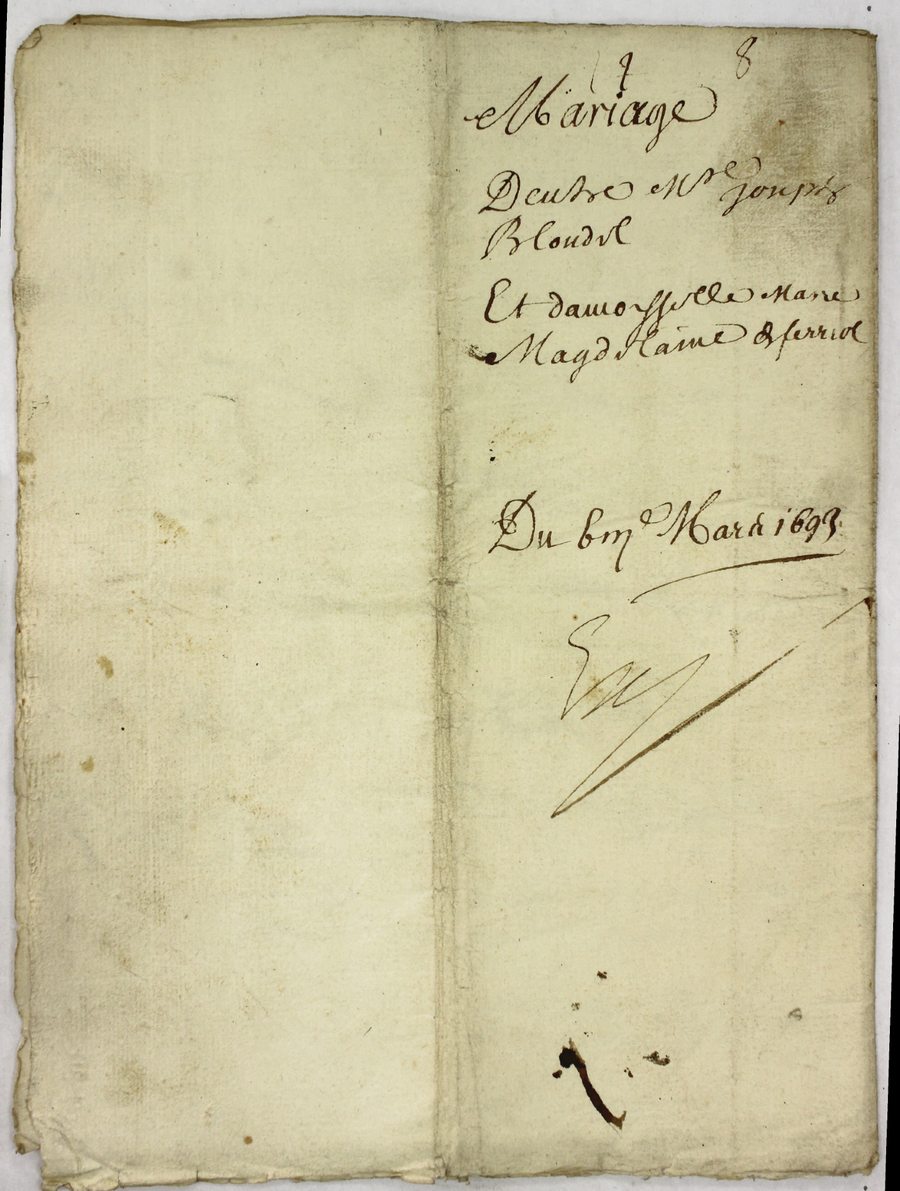 8
Mariage
Dentre Mtre
Blondel
Et damoysselle Marie
Magdelaine deferriol
Du 6me Mars 1693